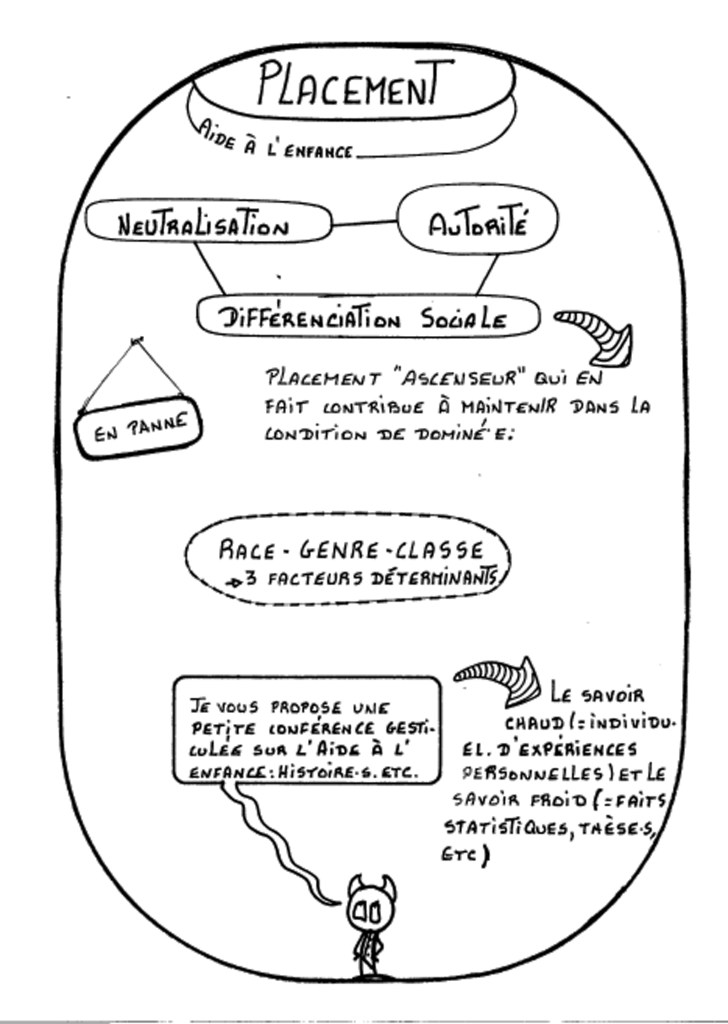 PLACEMENT
AIDE À L'ENFANCE
NEUTRALISATION
AUTORITÉ
DIFFÉRENCIATION SOCIALE
PLACEMENT "ASCENSEUR" QUI EN
FAIT CONTRIBUE À MAINTENIR DANS LA
CONDITION DE DOMINÉ·E:
EN PANNE
RACE - GENRE - CLASSE
→ 3 FACTEURS DÉTERMINANTS
JE VOUS PROPOSE UNE
PETITE CONFÉRENCE GESTI-
CULÉE SUR L'AIDE À L'
ENFANCE: HISTOIRE·S. ETC.
LE SAVOIR
CHAUD (= INDIVIDU-
EL. D'EXPÉRIENCES
PERSONNELLES) ET LE
SAVOIR FROID (= FAITS
STATISTIQUES, THÈSE·S,
ETC)